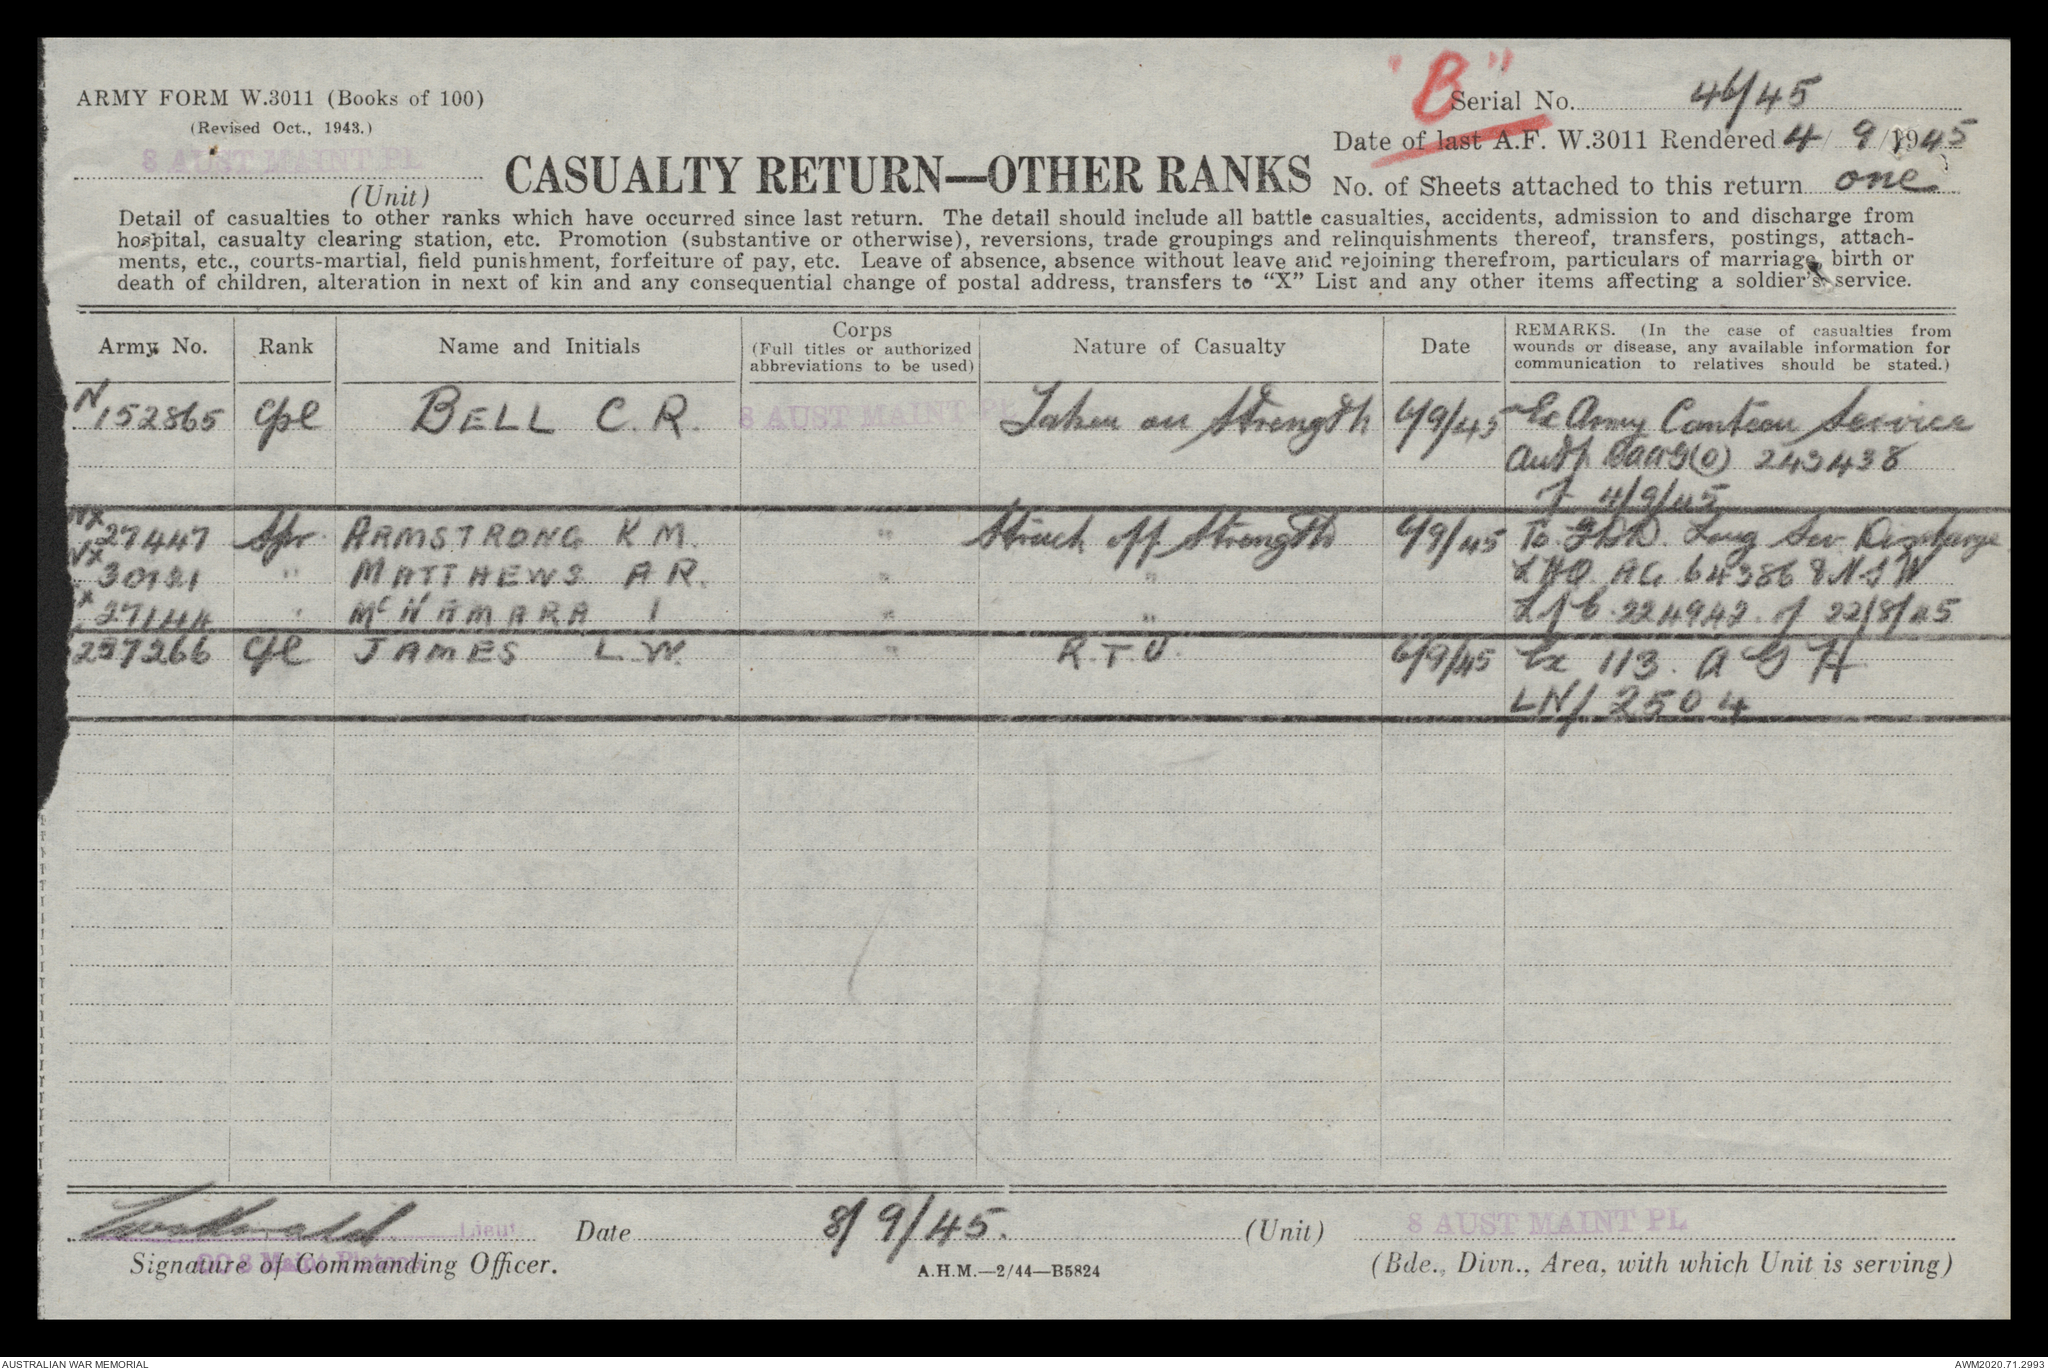 "B"
ARMY FORM W.3011 (Books of 100)
(Revised Oct., 1943.)
8 AUST MAINT PL
(Unit)
Serial No. 46/45
Date of last A.F. W.3011 Rendered 4/9/1945
CASUALTY RETURN—OTHER RANKS
No. of Sheets attached to this return one
Detail of casualties to other ranks which have occurred since last return. The detail should include all battle casualties, accidents, admission to and discharge from
hospital, casualty clearing station, etc. Promotion (substantive or otherwise), reversions, trade groupings and relinquishments thereof, transfers, postings, attach-
ments, etc., courts-martial, field punishment, forfeiture of pay, etc. Leave of absence, absence without leave and rejoining therefrom, particulars of marriage, birth or
death of children, alteration in next of kin and any consequential change of postal address, transfers to "X" List and any other items affecting a soldier's service.
Army No. Rank Name and Initials Corps (Full titles or authorized abbreviations to be used) Nature of Casualty Date REMARKS. (In the case of casualties from wounds or disease, any available information for communication to relatives should be stated.)
N152865 Cpl BELL C.R. 8 AUST MAINT PL Taken on Strength 6/9/45 Ex Army Canteen Service
Auth 243438
of 4/9/45
NX27447 Spr ARMSTRONG K M. " Struck off Strength 6/9/45 To GDD. Long Ser. Discharge
NX " MATTHEWS A R. " " LHQ. AG 643868 NSW
" McNAMARA I " " L of C. 224942 of 22/8/45
257266 Cpl JAMES L.W. " R.T.U. 6/9/45 Ex 113. A G H
LN/2504
Lieut
OC 8 Maint Platoon
Signature of Commanding Officer.
Date 8/9/45.
A.H.M.—2/44—B5824
(Unit) 8 AUST MAINT PL
(Bde., Divn., Area, with which Unit is serving)
AUSTRALIAN WAR MEMORIAL
AWM2020.71.2993